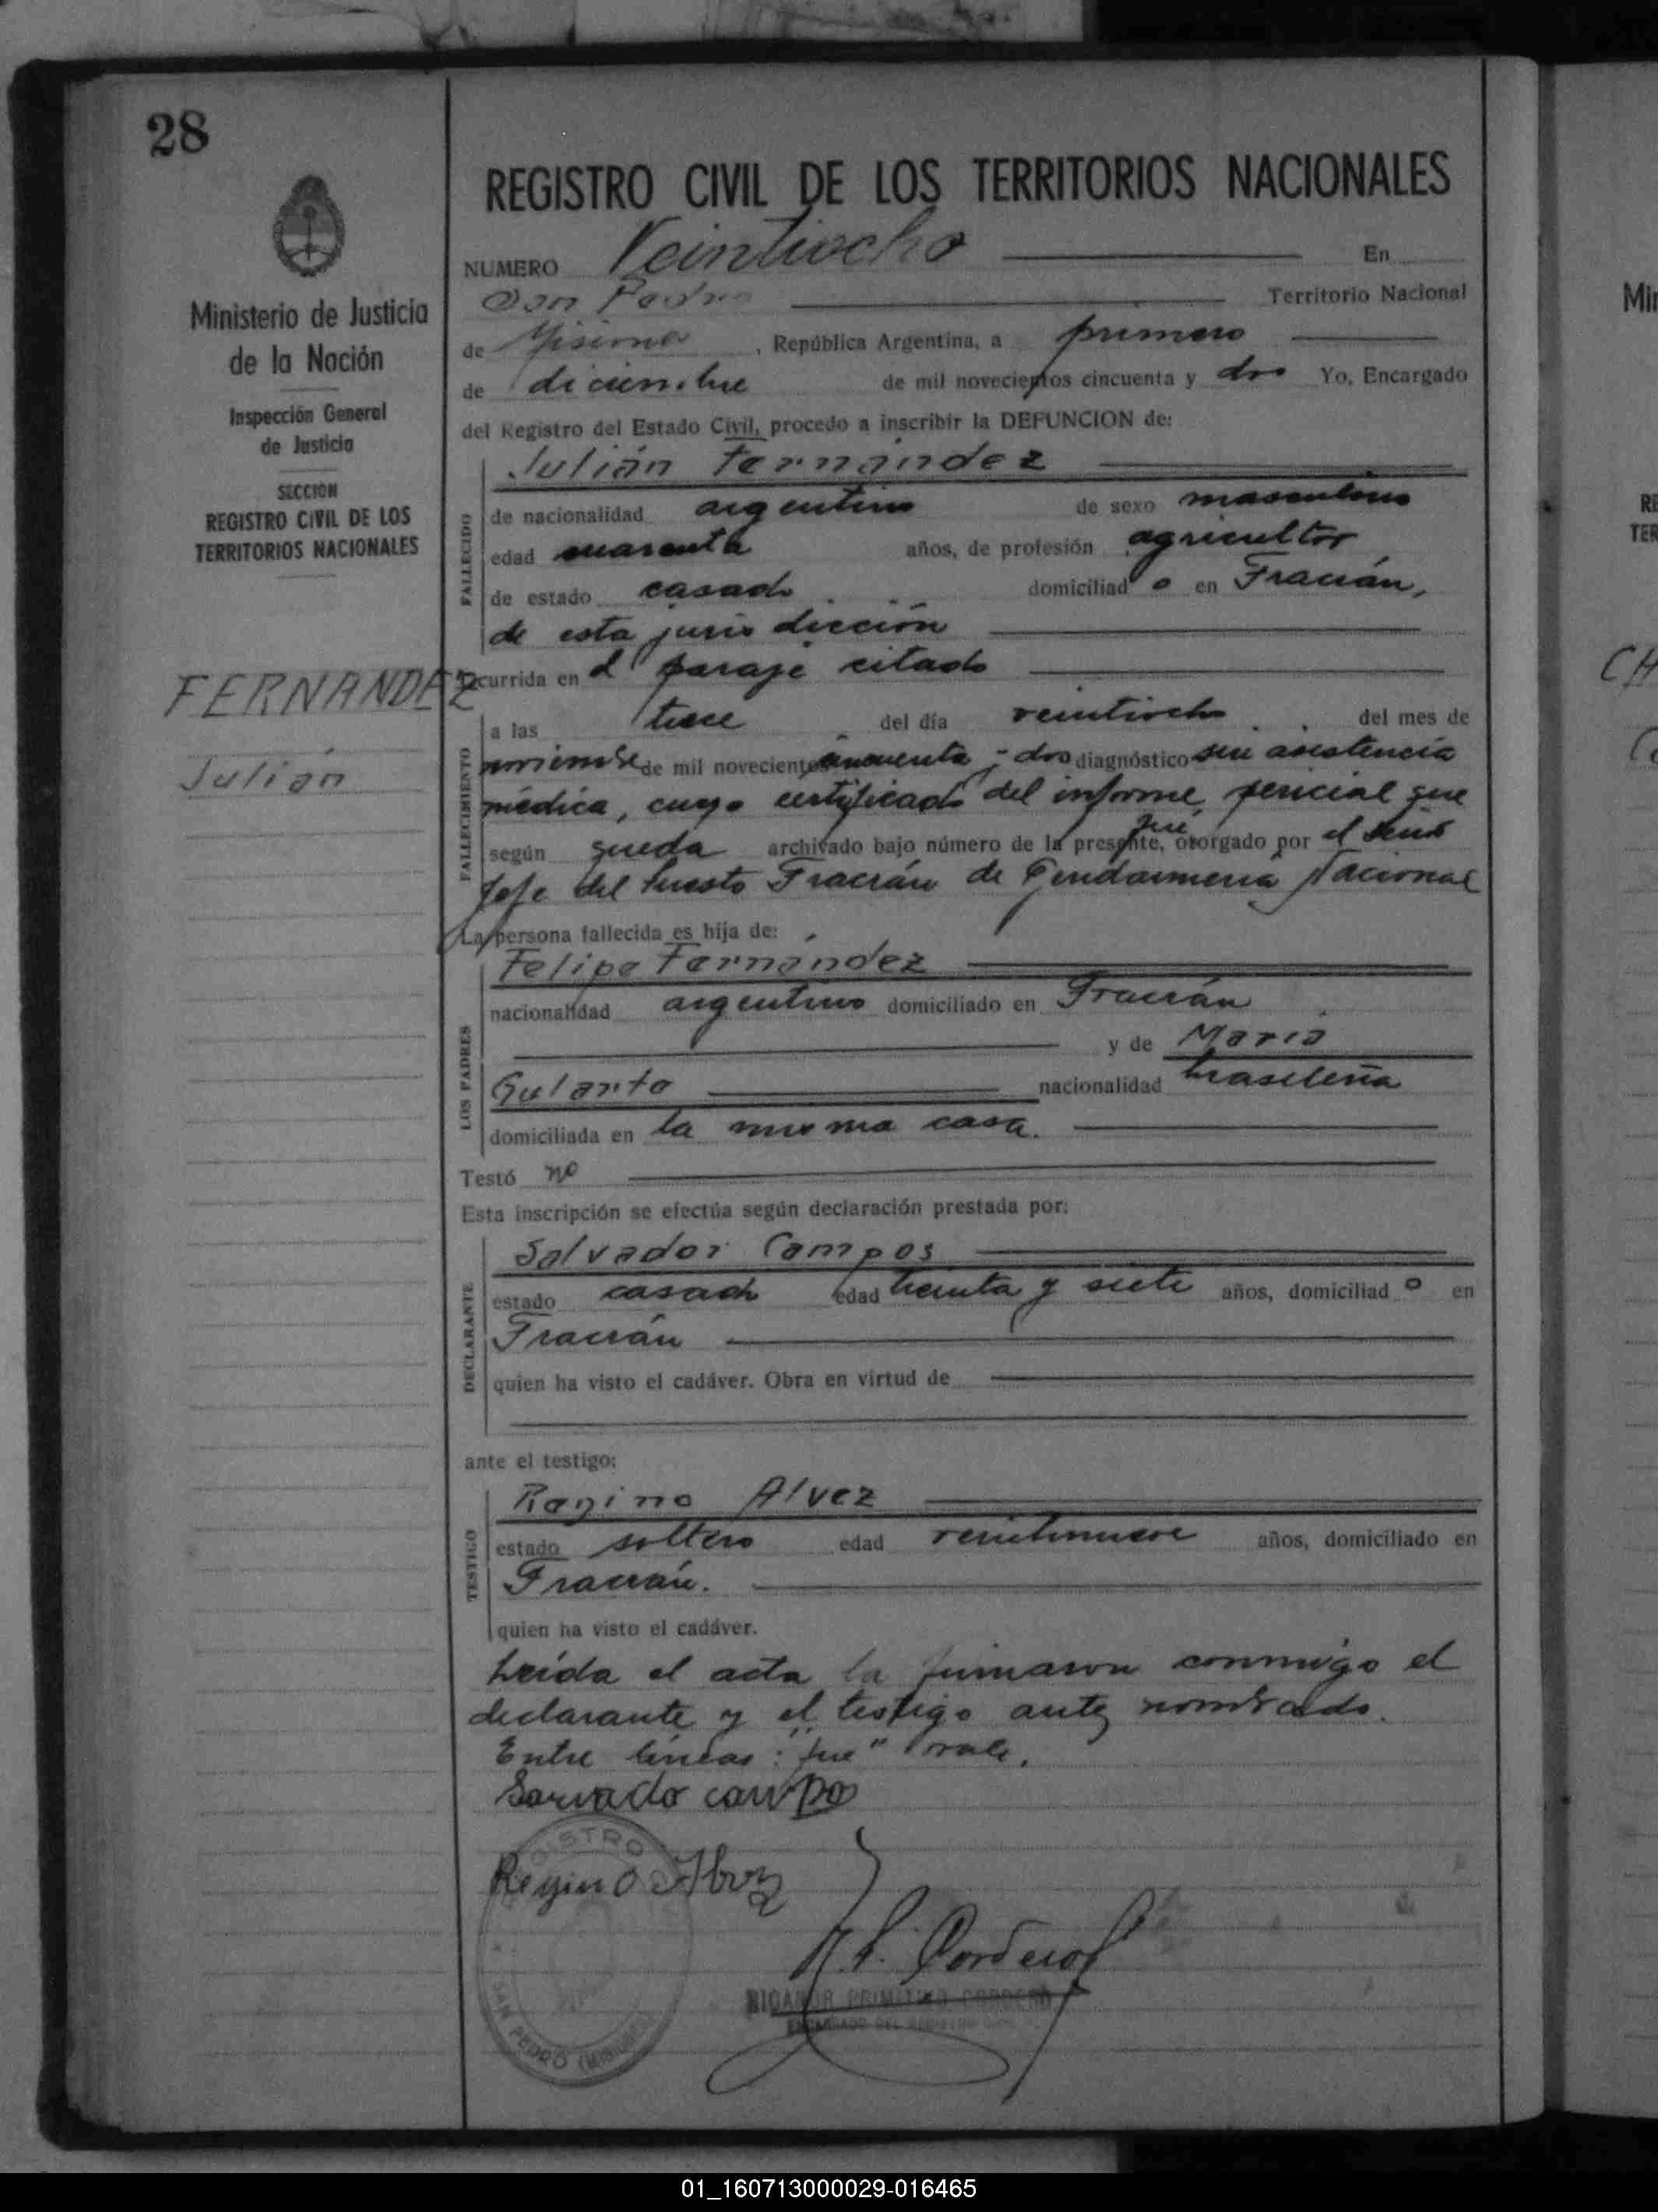 28
Ministerio de Justicia
de la Nación
Inspección General
de Justicia
SECCION
REGISTRO CIVIL DE LOS
TERRITORIOS NACIONALES
FERNANDEZ
Julián
REGISTRO CIVIL DE LOS TERRITORIOS NACIONALES
NUMERO Veintiocho En
San Pedro Territorio Nacional
de Misiones, República Argentina, a primero
de diciembre de mil novecientos cincuenta y dos Yo, Encargado
del Registro del Estado Civil, procedo a inscribir la DEFUNCION de:
FALLECIDO
Julián Fernández
de nacionalidad argentino de sexo masculino
edad cuarenta años, de profesión agricultor
de estado casado domiciliado en Fracrán,
de esta jurisdicción
FALLECIMIENTO
Ocurrida en el paraje citado
a las trece del día veintiocho del mes de
noviembre de mil novecientos cincuenta y dos diagnóstico sin asistencia
médica, cuyo certificado del informe pericial que
fue,
según queda archivado bajo número de la presente, otorgado por el señor
Jefe del Puesto Fracrán de Gendarmería Nacional
La persona fallecida es hija de:
LOS PADRES
Felipe Fernández
nacionalidad argentino domiciliado en Fracrán
y de María
Gularte nacionalidad brasileña
domiciliada en la misma casa.
Testó no
Esta inscripción se efectúa según declaración prestada por:
DECLARANTE
Salvador Campos
estado casado edad treinta y siete años, domiciliado en
Fracrán
quien ha visto el cadáver. Obra en virtud de
ante el testigo:
TESTIGO
Regino Alvez
estado soltero edad veintinueve años, domiciliado en
Fracrán.
quien ha visto el cadáver.
Leída el acta la firmaron conmigo el
declarante y el testigo antes nombrado.
Entre líneas: "fue" vale.
Sarvado campo
Regino
N.P. Cordero
NICANOR PRIMITIVO CORDERO
ENCARGADO DEL REGISTRO CIVIL
REGISTRO
SAN PEDRO (MISIONES)
Min
RE
TER
CH
01_160713000029-016465